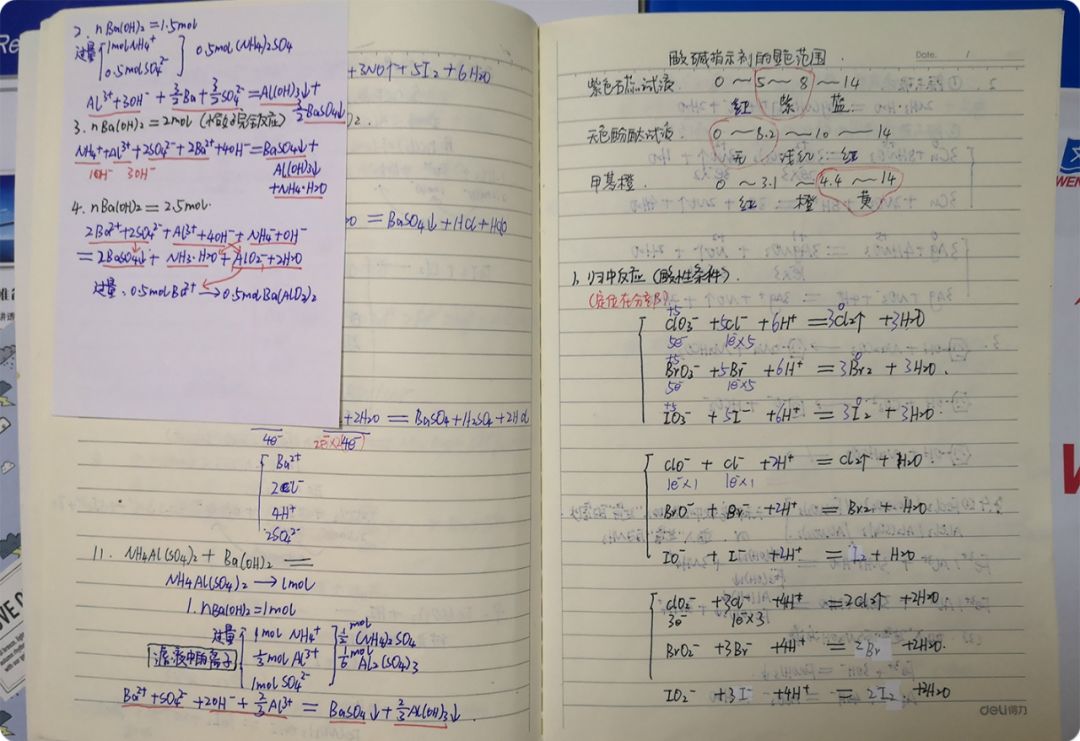 2. nBa(OH)₂ = 1.5mol
过量 1mol NH₄⁺
0.5mol SO₄²⁻
0.5mol (NH₄)₂SO₄
Al³⁺ + 3OH⁻ + 3/2Ba + 3/2SO₄²⁻ = Al(OH)₃↓ +
3/2BaSO₄↓
3. nBa(OH)₂ = 2mol (恰好完全反应)
NH₄⁺ + Al³⁺ + 2SO₄²⁻ + 2Ba²⁺ + 4OH⁻ = BaSO₄↓ +
1OH⁻ 3OH⁻
Al(OH)₃↓
+ NH₃·H₂O
4. nBa(OH)₂ = 2.5mol.
2Ba²⁺ + 2SO₄²⁻ + Al³⁺ + 4OH⁻ + NH₄⁺ + OH⁻
= 2BaSO₄↓ + NH₃·H₂O + AlO₂⁻ + 2H₂O
过量: 0.5mol Ba²⁺ → 0.5mol Ba(AlO₂)₂
+ 3NO↑ + 5I₂ + 6H₂O
= BaSO₄↓ + HCl + HClO
+ 2H₂O = BaSO₄ + H₂SO₄ + 2HCl
4e⁻
2e⁻×2(4e⁻)
Ba²⁺
2Cl⁻
4H⁺
2SO₄²⁻
11. NH₄Al(SO₄)₂ + Ba(OH)₂ =
NH₄Al(SO₄)₂ → 1mol
1. nBa(OH)₂ = 1mol
过量
滤液中的离子
1mol NH₄⁺
1/3mol Al³⁺
1mol SO₄²⁻
1/2mol (NH₄)₂SO₄
1/6mol Al₂(SO₄)₃
Ba²⁺ + SO₄²⁻ + 2OH⁻ + 2/3Al³⁺ = BaSO₄↓ + 2/3Al(OH)₃↓.
Date. /
酸碱指示剂的显色范围
紫色石蕊试液 0 ~ 5 ~ 8 ~ 14
红 紫 蓝
无色酚酞试液 0 ~ 8.2 ~ 10 ~ 14
无 浅红 红
甲基橙. 0 ~ 3.1 ~ 4.4 ~ 14
红 橙 黄
1. 归中反应 (酸性条件)
+5 0
ClO₃⁻ + 5Cl⁻ + 6H⁺ = 3Cl₂↑ + 3H₂O
5e⁻ 1e⁻×5
+5 0
BrO₃⁻ + 5Br⁻ + 6H⁺ = 3Br₂ + 3H₂O.
5e⁻ 1e⁻×5
+5 0
IO₃⁻ + 5I⁻ + 6H⁺ = 3I₂ + 3H₂O.
ClO⁻ + Cl⁻ + 2H⁺ = Cl₂↑ + H₂O.
1e⁻×1 1e⁻×1
BrO⁻ + Br⁻ + 2H⁺ = Br₂ + H₂O.
IO⁻ + I⁻ + 2H⁺ = I₂ + H₂O
ClO₂⁻ + 3Cl⁻ + 4H⁺ = 2Cl₂↑ + 2H₂O
3e⁻ 1e⁻×3
BrO₂⁻ + 3Br⁻ + 4H⁺ = 2Br + 2H₂O.
IO₂⁻ + 3I⁻ + 4H⁺ = 2I₂ + 2H₂O
deli得力